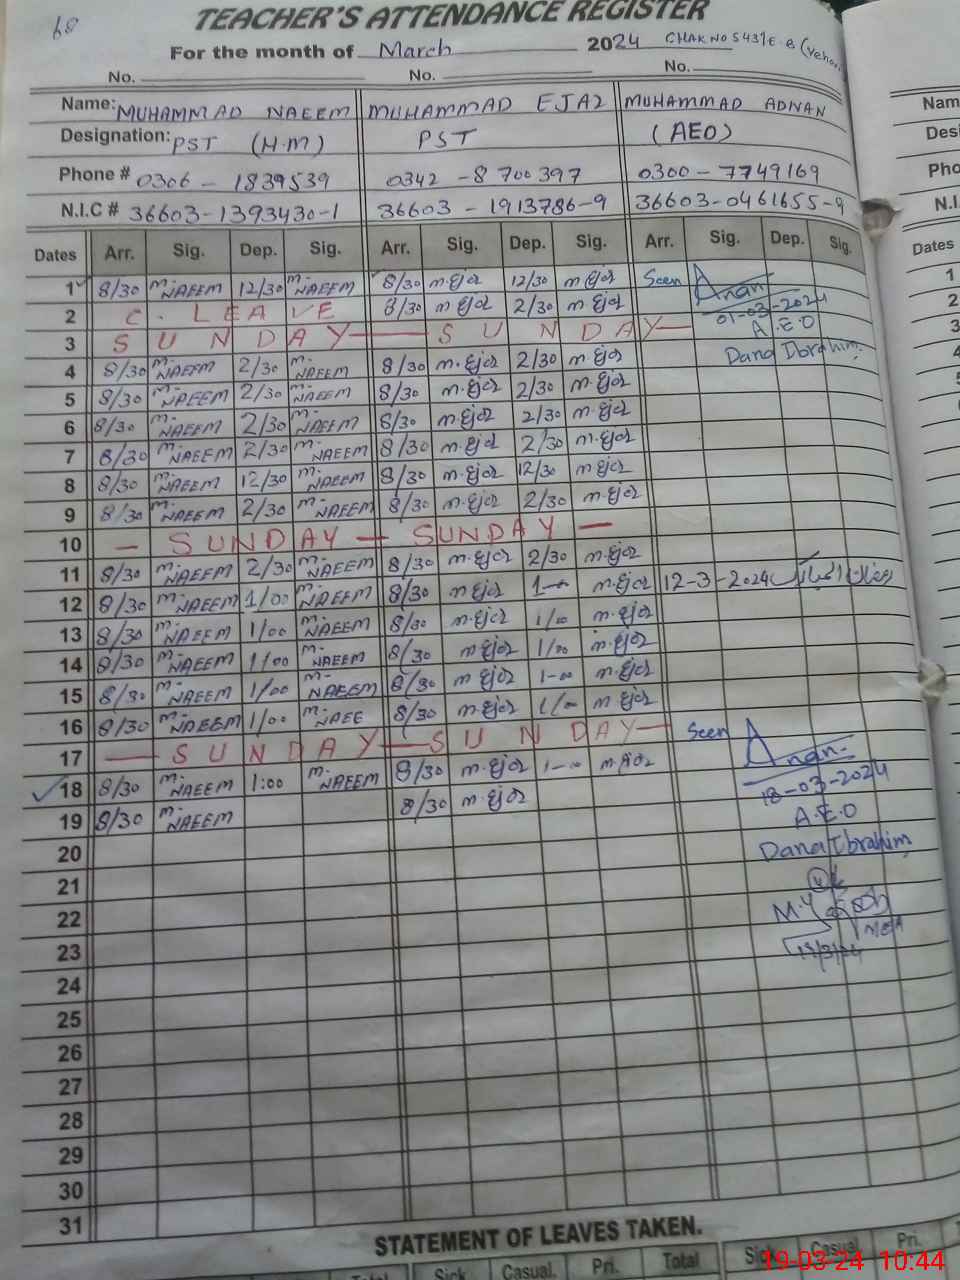 68
TEACHER'S ATTENDANCE REGISTER
For the month of March 2024 CHAK NO 543/E.B
No. No. No.
Name: MUHAMMAD NAEEM MUHAMMAD EJAZ MUHAMMAD ADNAN
Designation: PST (H.M) PST (AEO)
Phone # 0306 - 1839539 0342 - 8700397 0300 - 7749169
N.I.C # 36603-1393430-1 36603 - 1913786-9 36603-0461655-9
Dates Arr. Sig. Dep. Sig. Arr. Sig. Dep. Sig. Arr. Sig. Dep. Sig.
1 8/30 M-NAEEM 12/30 M-NAEEM 8/30 m.Ejaz 12/30 m.Ejaz Seen Adnan
2 C. LEAVE 8/30 m.Ejaz 2/30 m.Ejaz 01-03-2024
3 SUNDAY SUNDAY A.E.O
4 8/30 M-NAEEM 2/30 M-NAEEM 8/30 m.Ejaz 2/30 m.Ejaz Dana Ibrahim.
5 8/30 M-NAEEM 2/30 M-NAEEM 8/30 m.Ejaz 2/30 m.Ejaz
6 8/30 M-NAEEM 2/30 M-NAEEM 8/30 m.Ejaz 2/30 m.Ejaz
7 8/30 M-NAEEM 2/30 M-NAEEM 8/30 m.Ejaz 2/30 m.Ejaz
8 8/30 M-NAEEM 12/30 M-NAEEM 8/30 m.Ejaz 12/30 m.Ejaz
9 8/30 M-NAEEM 2/30 M-NAEEM 8/30 m.Ejaz 2/30 m.Ejaz
10 — SUNDAY — SUNDAY —
11 8/30 M-NAEEM 2/30 M-NAEEM 8/30 m.Ejaz 2/30 m.Ejaz
12 8/30 M-NAEEM 1/00 M-NAEEM 8/30 m.Ejaz 1-00 m.Ejaz 12-3-2024
13 8/30 M-NAEEM 1/00 M-NAEEM 8/30 m.Ejaz 1/00 m.Ejaz
14 8/30 M-NAEEM 1/00 M-NAEEM 8/30 m.Ejaz 1/00 m.Ejaz
15 8/30 M-NAEEM 1/00 M-NAEEM 8/30 m.Ejaz 1-00 m.Ejaz
16 8/30 M-NAEEM 1/00 M-NAEE 8/30 m.Ejaz 1/00 m.Ejaz
17 — SUNDAY — SUNDAY — Seen Adnan
18 8/30 M-NAEEM 1:00 M-NAEEM 8/30 m.Ejaz 1-00 m.Ejaz 18-03-2024
19 8/30 M-NAEEM 8/30 m.Ejaz A.E.O
20 Dana Ibrahim
21
22
23 MEA
24 19/3/24
25
26
27
28
29
30
31
STATEMENT OF LEAVES TAKEN.
Total Sick Casual. Pri. Total Sick Casual Pri.
Nam
Desi
Pho
N.I.
Dates
1
2
3
4
5
19-03-24 10:44